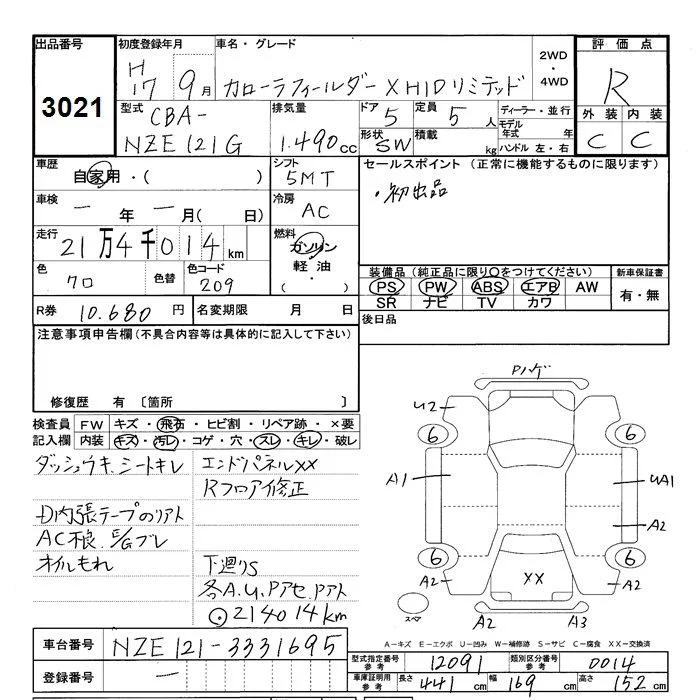 出品番号 初度登録年月 車名・グレード 2WD ・ 4WD 評価点
3021 H17 9月 カローラフィールダー X HIDリミテッド R
型式 CBA- NZE121G 排気量 1.490cc ドア 5 定員 5人 ディーラー・並行 外装 内装
形状 SW 積載 kg モデル年式 年 ハンドル 左・右 C C
車歴 自家用・( ) シフト 5MT セールスポイント (正常に機能するものに限ります)
車検 ー年 ー月(日) 冷房 AC ・初出品
走行 21万4千014km 燃料 ガソリン 軽油・ ・( )
色 クロ 色替 色コード 209 装備品(純正品に限り○をつけてください) 新車保証書
PS PW ABS エアB AW 有・無
SR ナビ TV カワ
R券 10.680円 名変期限 月 日 後日品
注意事項申告欄(不具合内容等は具体的に記入して下さい)
修復歴 有 〔箇所 〕
検査員 FW キズ・飛石・ヒビ割・リペア跡・×要
記入欄 内装 キズ・汚レ・コゲ・穴・スレ・キレ・破レ
ダッシュウキ、シートキレ エンドパネルXX
Rフロア修正
D内張テープのリアト
AC不良、E/Gブレ
オイルもれ 下廻りS
各A.U.Pアセ.Pアト
⊙214014km
Pハゲ
U2
6 6
A1 UA1
A2
6 6
A2 XX A2
スペア A2 A3
A-キズ E-エクボ U-凹み W-補修跡 S-サビ C-腐食 XX-交換済
車台番号 NZE121-3331695
型式指定番号 参考 12091 類別区分番号 参考 0014
登録番号 ー
車庫証明用 参考 長さ 441cm 幅 169cm 高さ 152cm